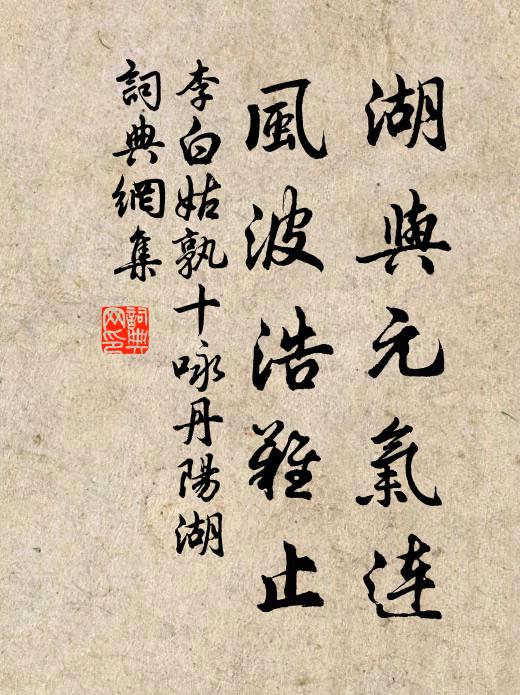 湖與元氣連
風波浩難止
李白姑孰十咏丹陽湖
詞典網集
詞典
网印